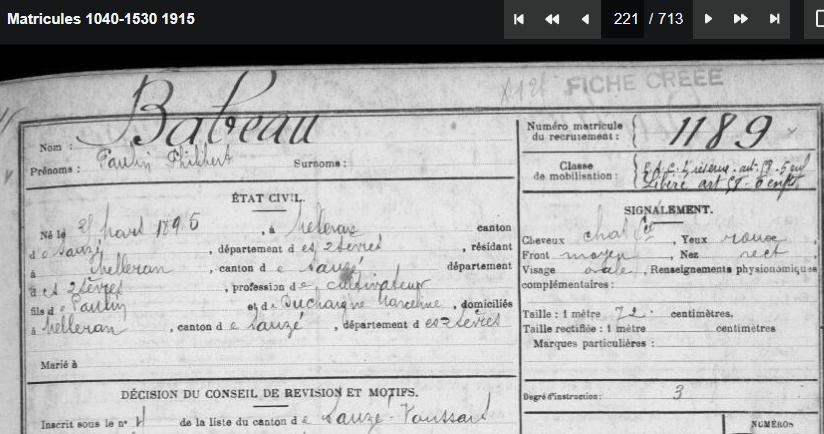 Matricules 1040-1530 1915
221 / 713
FICHE CRÉÉE
Babeau
Nom :
Prénoms : Paulin Philibert Surnoms :
Numéro matricule du recrutement : 1189
Classe de mobilisation :
Libéré art 58 - 6 enfts
ÉTAT CIVIL.
Né le 1895, à Melleran canton
de Sauzé, département des 2 Sèvres, résidant
à Melleran, canton de Sauzé département
des 2 Sèvres, profession de cultivateur
fils de Paulin et de Duchaigne Marceline, domiciliés
à Melleran, canton de Sauzé, département des 2 Sèvres
Marié à
SIGNALEMENT.
Cheveux chat, Yeux
Front moyen, Nez rect
Visage ovale, Renseignements physionomiques
complémentaires :
Taille : 1 mètre 72 centimètres.
Taille rectifiée : 1 mètre centimètres
Marques particulières :
Degré d'instruction : 3
DÉCISION DU CONSEIL DE REVISION ET MOTIFS.
Inscrit sous le n° 4 de la liste du canton de Sauzé-Vaussais
NUMÉROS